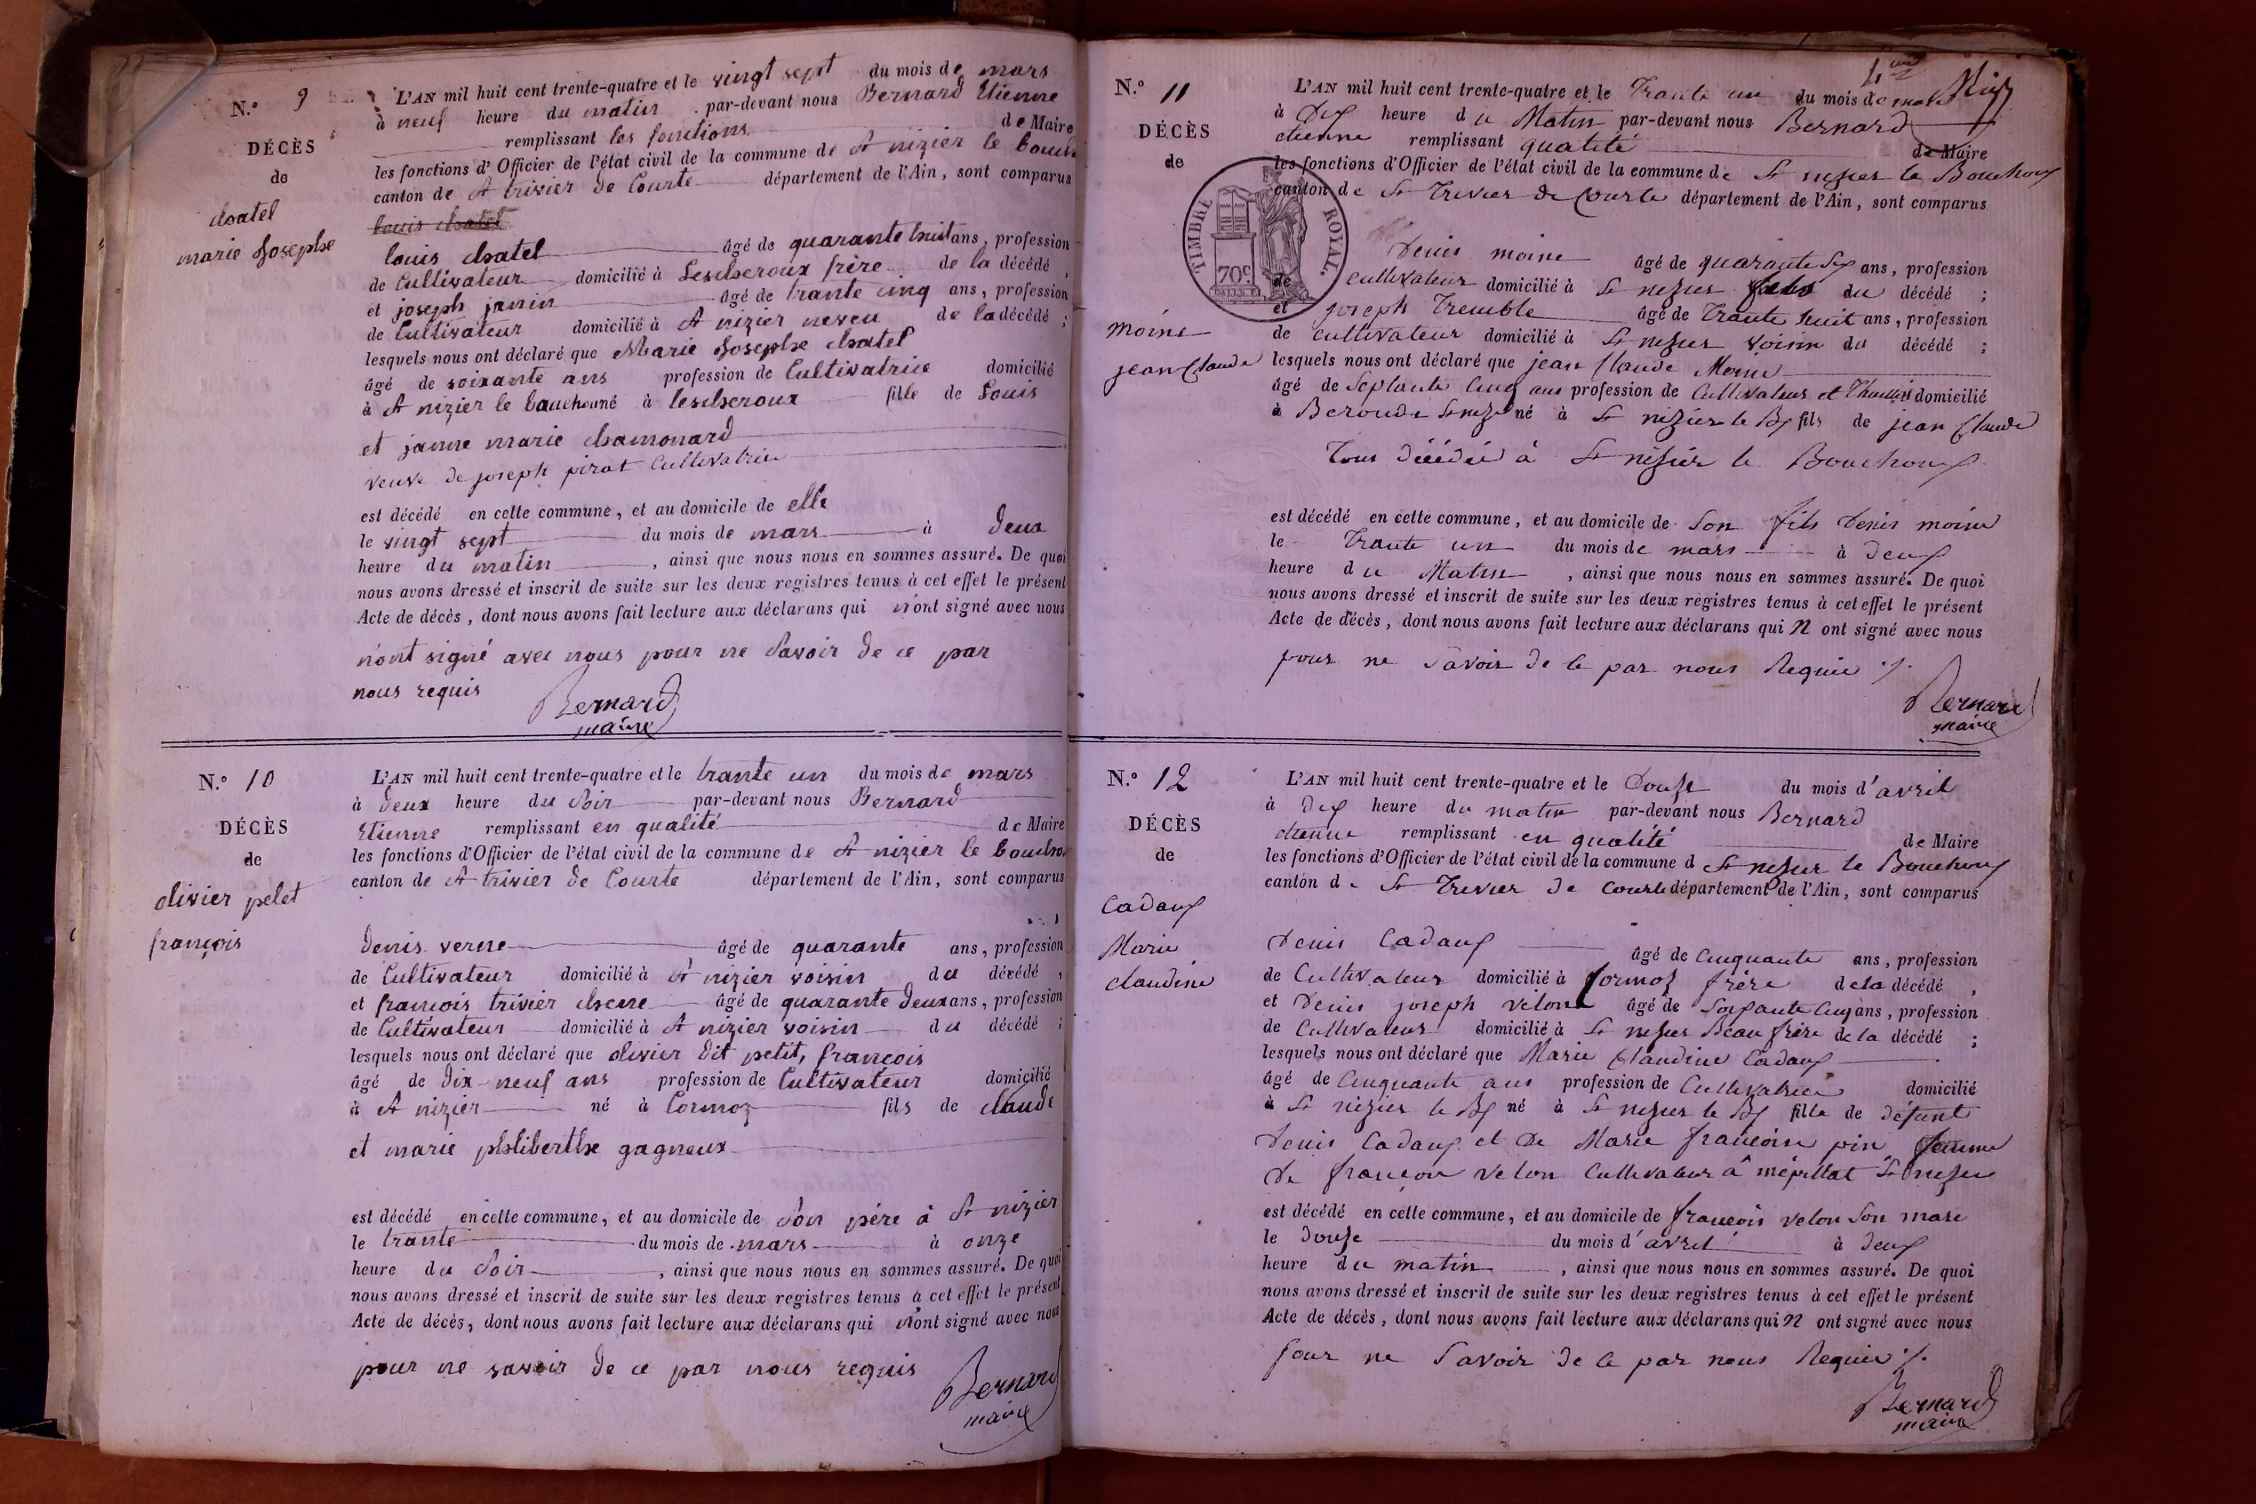 N.° 9
DÉCÈS
de
chatel
marie Josephe
L'AN mil huit cent trente-quatre et le vingt sept du mois de mars
à neuf heure du matin par-devant nous Bernard Etienne
remplissant les fonctions de Maire
les fonctions d'Officier de l'état civil de la commune de St nizier le bouch
canton de St trivier de Courte département de l'Ain, sont comparus
louis chatel
louis chatel âgé de quarante huit ans, profession
de Cultivateur domicilié à Lescheroux frère de la décédé,
et joseph janin âgé de trante cinq ans, profession
de Cultivateur domicilié à St nizier neveu de la décédé;
lesquels nous ont déclaré que Marie Josephe chatel
âgé de soixante ans profession de Cultivatrice domicilié
à St nizier le bouchou né à lescheroux fille de Louis
et janne marie chamonard
veuve de joseph pirat Cultivatrice
est décédé en cette commune, et au domicile de elle
le vingt sept du mois de mars à deux
heure du matin, ainsi que nous nous en sommes assuré. De quoi
nous avons dressé et inscrit de suite sur les deux registres tenus à cet effet le présent
Acte de décès, dont nous avons fait lecture aux déclarans qui n'ont signé avec nous
n'ont signé avec nous pour ne savoir de ce par
nous requis
Bernard
maire
N.° 10
DÉCÈS
de
olivier pelet
françois
L'AN mil huit cent trente-quatre et le trante un du mois de mars
à deux heure du soir par-devant nous Bernard
Etienne remplissant en qualité de Maire
les fonctions d'Officier de l'état civil de la commune de St nizier le bouchou
canton de St trivier de Courte département de l'Ain, sont comparus
denis verne âgé de quarante ans, profession
de Cultivateur domicilié à St nizier voisin du décédé,
et françois trivier chene âgé de quarante deux ans, profession
de Cultivateur domicilié à St nizier voisin du décédé;
lesquels nous ont déclaré que olivier dit petit, françois
âgé de dix-neuf ans profession de Cultivateur domicilié
à St nizier né à Cormoz fils de claude
et marie philiberthe gagneux
est décédé en cette commune, et au domicile de son père à St nizier
le trante du mois de mars à onze
heure du soir, ainsi que nous nous en sommes assuré. De quoi
nous avons dressé et inscrit de suite sur les deux registres tenus à cet effet le présent
Acte de décès, dont nous avons fait lecture aux déclarans qui n'ont signé avec nous
pour ne savoir de ce par nous requis
Bernard
maire
N.° 11
DÉCÈS
de
TIMBRE ROYAL.
70c.
moine
jean Claude
L'AN mil huit cent trente-quatre et le Trante un du mois de mars
à Dix heure du Matin par-devant nous Bernard
etienne remplissant qualité de Maire
les fonctions d'Officier de l'état civil de la commune de St nizier le Bouchoux
canton de St Trivier de Courte département de l'Ain, sont comparus
Denis moine âgé de quarante six ans, profession
de cultivateur domicilié à St nizier fils du décédé;
et joseph Tremble âgé de Trante huit ans, profession
de cultivateur domicilié à St nizier voisin du décédé;
lesquels nous ont déclaré que jean Claude Moine
âgé de Septante Cinq ans profession de Cultivateur domicilié
à né à St nizier le Bx fils de jean Claude
Tous décédé à St nizier le Bouchoux
est décédé en cette commune, et au domicile de son fils Denis moine
le Trante un du mois de mars à deux
heure du Matin, ainsi que nous nous en sommes assuré. De quoi
nous avons dressé et inscrit de suite sur les deux registres tenus à cet effet le présent
Acte de décès, dont nous avons fait lecture aux déclarans qui n ont signé avec nous
pour ne savoir de ce par nous Requis ./.
Bernard
maire
N.° 12
DÉCÈS
de
Cadoux
Marie
claudine
L'AN mil huit cent trente-quatre et le Douze du mois d'avril
à dix heure du matin par-devant nous Bernard
etienne remplissant en qualité de Maire
les fonctions d'Officier de l'état civil de la commune d St nizier le Bouchoux
canton de St Trivier de Courte département de l'Ain, sont comparus
Denis Cadoux âgé de Cinquante ans, profession
de Cultivateur domicilié à Cormoz frère de la décédé,
et Denis joseph velon âgé de Soixante Cinq ans, profession
de Cultivateur domicilié à St nizier Beau frère de la décédé;
lesquels nous ont déclaré que Marie Claudine Cadoux
âgé de Cinquante ans profession de Cultivatrice domicilié
à St nizier le Bx né à St nizier le Bx fille de défunt
Denis Cadoux et de Marie françoise pin femme
de françois velon Cultivateur à mépillat St nizier
est décédé en cette commune, et au domicile de françois velon son mari
le douze du mois d'avril à deux
heure du matin, ainsi que nous nous en sommes assuré. De quoi
nous avons dressé et inscrit de suite sur les deux registres tenus à cet effet le présent
Acte de décès, dont nous avons fait lecture aux déclarans qui n ont signé avec nous
pour ne savoir de ce par nous Requis ./.
Bernard
maire